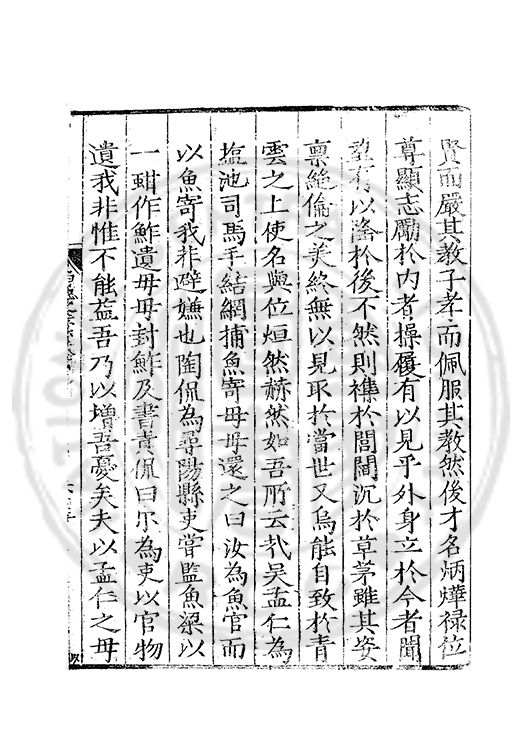 賢而嚴其教子孝而佩服其教然後才名炳燁禄位
尊顯志勵於內者操履有以見乎外身立於今者聞
望有以滀於後不然則襍於閭閻沉於草茅雖其姿
禀絶倫之美終無以見取於當世又烏能自致於青
雲之上使名與位烜然赫然如吾所云哉吴孟仁為
塩池司馬手結網捕魚寄母母還之曰汝為魚官而
以魚寄我非避嫌也陶侃為尋陽縣吏嘗監魚梁以
一坩作鮓遺母母封鮓及書責侃曰尔為吏以官物
遺我非惟不能益吾乃以增吾憂矣夫以孟仁之母